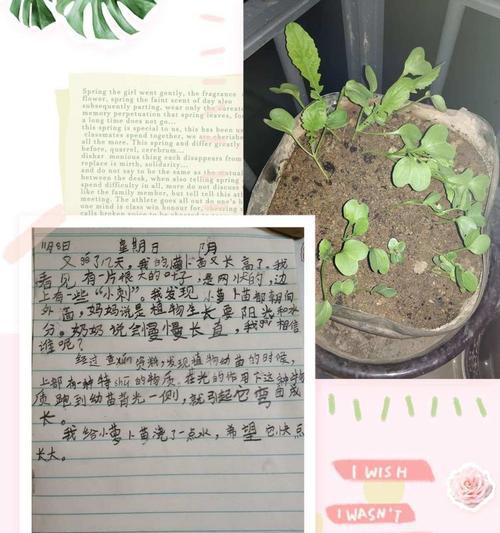 Spring the girl went gently, the fragrance
flower, spring the faint scent of day also
subsequently parting, wear only the
memory perpetuation that spring leaves, for
a long time does not go...
this spring is special to us, this has been us
classmates spend together, we are
all the more. This spring and differ greatly
before, quarrel, cerebrum...
disher monious thing each disappears from
replace is mirth, solidarity...
and do not say to be the same as the mutual
between the desk, when also telling spring
spend difficulty in all, more do not discuss
like the family member, but tell still this
meeting. The athlete goes all out do one's
one mind is class win honour for,
calls broken going to be
星期日 阴
又过了几天，我的萝卜苗又长高了。我
看见有一片很大的叶子，是两快的，边
上有一些“小刺”。我发现小萝卜苗都朝向
外面，妈妈说是植物生长要阳光和水
分。奶奶说会慢慢长直，我相信
谁呢？
经过查资料，发现植物幼苗的时候，
上部有一种特shū的物质。在光的作用下这种物
质跑到幼苗背光一侧，就引起它弯曲成
长。
我给小萝卜苗浇了一点水，希望它快点
长大。
I WISH
I WASN'T